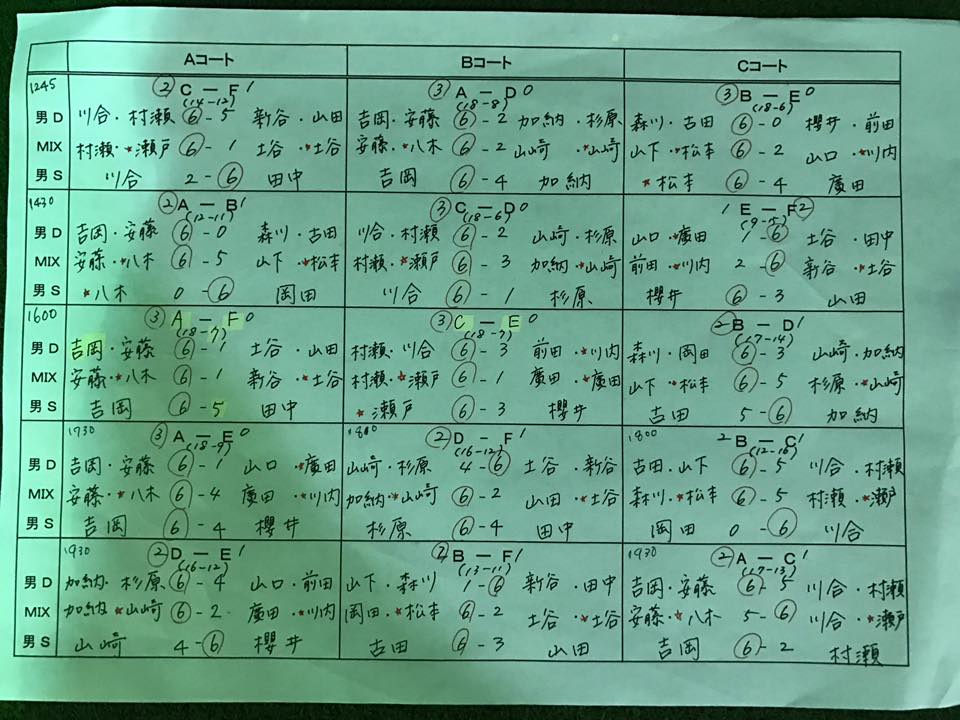 Aコート Bコート Cコート
1245 ② C － F 1 ③ A － D 0 ③ B － E 0
(14-12) (18-8) (18-6)
男D 川合・村瀬 ⑥-5 新谷・山田 吉岡・安藤 ⑥-2 加納・杉原 森川・吉田 ⑥-0 櫻井・前田
MIX 村瀬・*瀬戸 ⑥-1 土谷・*土谷 安藤・*八木 ⑥-2 山崎・*山崎 山下・*松本 ⑥-2 山口・*川内
男S 川合 2-⑥ 田中 吉岡 ⑥-4 加納 *松本 ⑥-4 廣田
1430 ② A － B 1 ③ C － D 0 1 E － F ②
(12-11) (18-6) (9-15)
男D 吉岡・安藤 ⑥-0 森川・古田 川合・村瀬 ⑥-2 山崎・杉原 山口・*廣田 1-⑥ 土谷・田中
MIX 安藤・*八木 ⑥-5 山下・*松本 村瀬・*瀬戸 ⑥-3 加納・*山崎 前田・*川内 2-⑥ 新谷・*土谷
男S *八木 0-⑥ 岡田 川合 ⑥-1 杉原 櫻井 ⑥-3 山田
1600 ③ A － F 0 ③ C － E 0 ② B － D 1
(18-7) (18-7) (17-14)
男D 吉岡・安藤 ⑥-1 土谷・山田 村瀬・川合 ⑥-3 前田・*川内 森川・岡田 ⑥-3 山崎・加納
MIX 安藤・*八木 ⑥-1 新谷・*土谷 村瀬・*瀬戸 ⑥-1 廣田・*廣田 山下・*松本 ⑥-5 杉原・*山崎
男S 吉岡 ⑥-5 田中 *瀬戸 ⑥-3 櫻井 古田 5-⑥ 加納
1730 ③ A － E 0 ② D － F 1 1800 2 B － C 1
(18-9) (16-12) (12-16)
男D 吉岡・安藤 ⑥-1 山口・*廣田 山崎・杉原 4-⑥ 土谷・新谷 古田・山下 ⑥-5 川合・村瀬
MIX 安藤・*八木 ⑥-4 廣田・*川内 加納・*山崎 ⑥-2 山田・*土谷 森川・*松本 ⑥-5 村瀬・*瀬戸
男S 吉岡 ⑥-4 櫻井 杉原 ⑥-4 田中 岡田 0-⑥ 川合
1930 ② D － E 1 ② B － F 1 1930 ② A － C 1
(16-12) (13-11) (17-13)
男D 加納・杉原 ⑥-4 山口・前田 山下・森川 1-⑥ 新谷・田中 吉岡・安藤 ⑥-5 川合・村瀬
MIX 加納・*山崎 ⑥-2 廣田・*川内 岡田・*松本 ⑥-2 土谷・*土谷 安藤・*八木 5-⑥ 川合・*瀬戸
男S 山崎 4-⑥ 櫻井 古田 ⑥-3 山田 吉岡 ⑥-2 村瀬